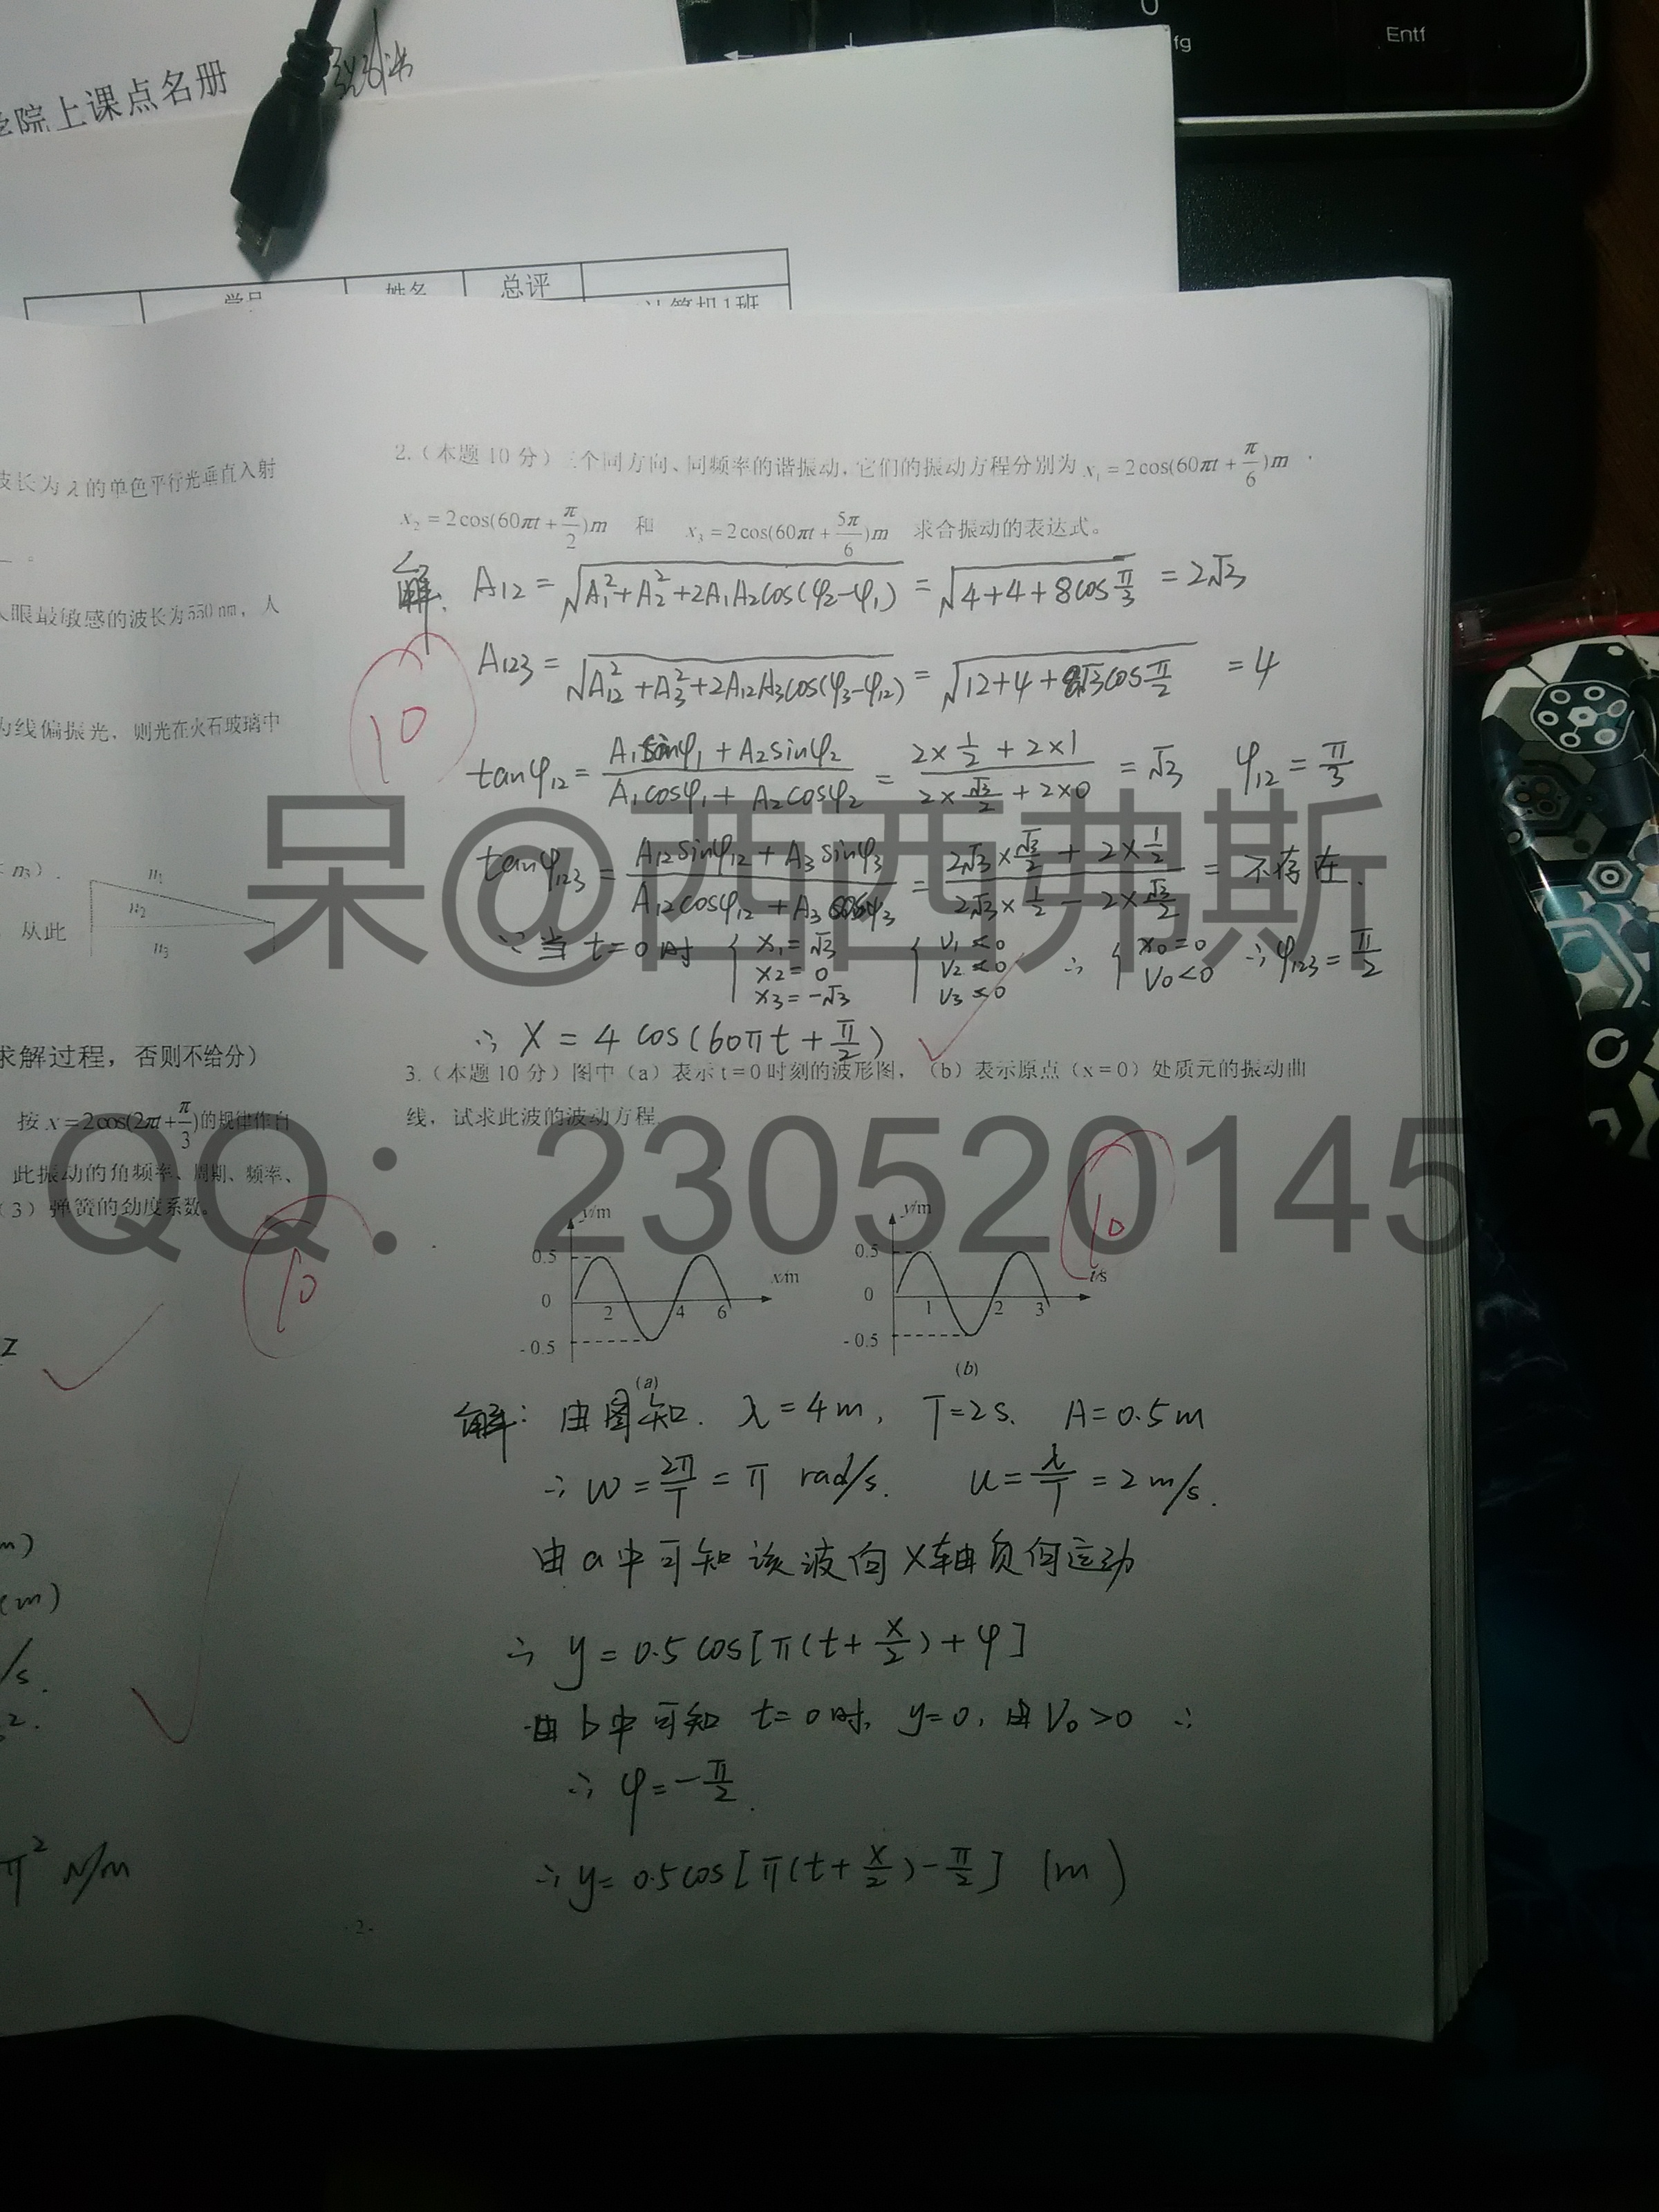 Entf
fg
学院上课点名册
学号 姓名 总评
计算机1班
波长为λ的单色平行光垂直入射
人眼最敏感的波长为550nm，人
为线偏振光，则光在火石玻璃中
n₃）．
n₁
n₂
n₃
从此
求解过程，否则不给分）
按 x=2cos(2πt+π/3)的规律作自
此振动的角频率、周期、频率、
（3）弹簧的劲度系数。
10
z
m)
(m)
/s.
2.
π² N/m
-2-
2.（本题10分）三个同方向、同频率的谐振动，它们的振动方程分别为 x₁=2cos(60πt+π/6)m
x₂=2cos(60πt+π/2)m 和 x₃=2cos(60πt+5π/6)m 求合振动的表达式。
解. A₁₂=√(A₁²+A₂²+2A₁A₂cos(φ₂-φ₁))=√(4+4+8cosπ/3)=2√3
A₁₂₃=√(A₁₂²+A₃²+2A₁₂A₃cos(φ₃-φ₁₂))=√(12+4+8√3cosπ/2)=4
10
tanφ₁₂=(A₁sinφ₁+A₂sinφ₂)/(A₁cosφ₁+A₂cosφ₂)=(2×1/2+2×1)/(2×√3/2+2×0)=√3 φ₁₂=π/3
tanφ₁₂₃=(A₁₂sinφ₁₂+A₃sinφ₃)/(A₁₂cosφ₁₂+A₃cosφ₃)=(2√3×√3/2+2×1/2)/(2√3×1/2-2×√3/2)=不存在.
∵当t=0时 { x₁=√3 x₂=0 x₃=-√3 { v₁<0 v₂<0 v₃<0 ∴ { x₀=0 v₀<0 ∴φ₁₂₃=π/2
∴ X=4cos(60πt+π/2)
3.（本题10分）图中（a）表示t=0时刻的波形图，（b）表示原点（x=0）处质元的振动曲
线，试求此波的波动方程.
10
y/m y/m
0.5 x/m 0.5 t/s
0 2 4 6 0 1 2 3
-0.5 -0.5
(a) (b)
解：由图知. λ=4m, T=2s. A=0.5m
∴ω=2π/T=π rad/s. u=λ/T=2m/s.
由a中可知该波向X轴负何运动
∴ y=0.5cos[π(t+x/2)+φ]
由b中可知 t=0时, y=0, 由V₀>0 ∴
∴ φ=-π/2.
∴y=0.5cos[π(t+x/2)-π/2] (m)
呆@西西弗斯
QQ：230520145